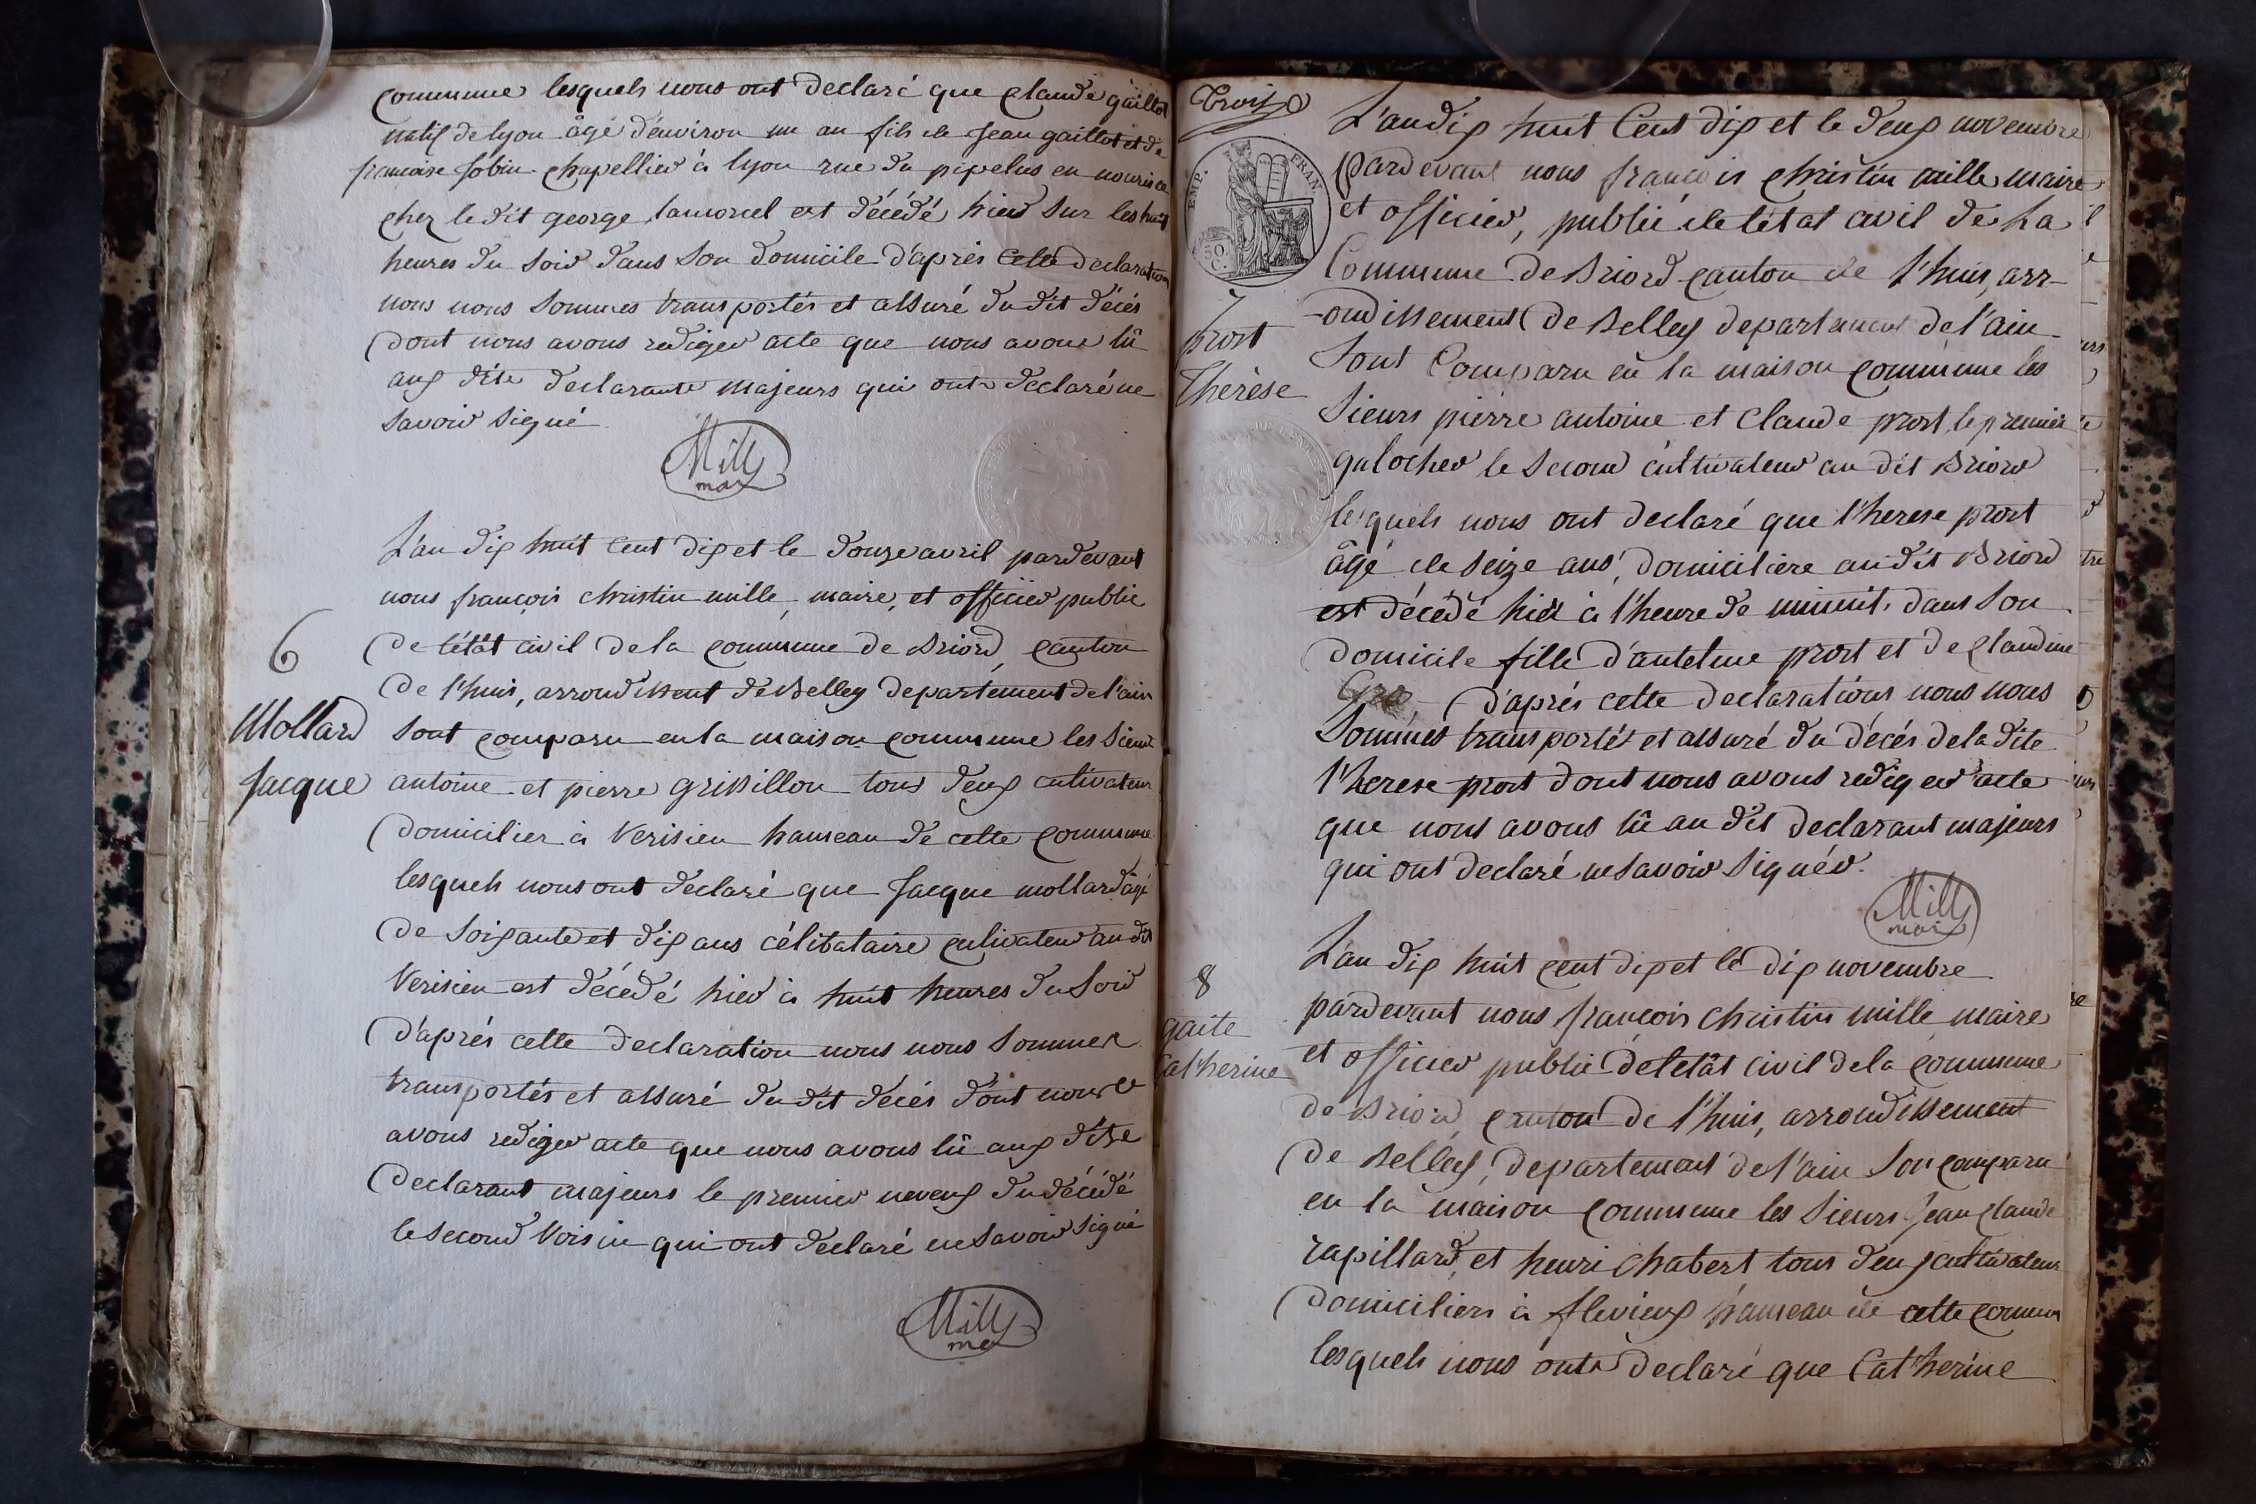 commune lesquels nous ont declaré que claude gaillot
natif de lyon âgé d'environ un an fils de Jean gaillot et de
francoise Jobin chapellier à lyon rue du pipelus en nourice
chez le dit george lamorcel est décédé hier sur les huit
heures du soir dans son domicile d'après cette declaration
nous nous sommes transportés et assuré du dit décès
dont nous avons rediger acte que nous avons lû
aux dits declarants majeurs qui ont declaré ne
savoir signé
Mille
maire
L'an dix huit cent dix et le douze avril pardevant
nous françois christin mille, maire, et officier public
de l'état civil de la commune de Briord, canton
de l'huis, arrondissent de Belley departement de l'ain
6
Mollard
Jacque
sont comparu en la maison commune les sieurs
antoine et pierre grissillon tous deux cultivateur
domicilier à Verisieu hameau de cette commune
lesquels nous ont declaré que Jacque mollard âgé
de soixante et dix ans célibataire cultivateur au dit
Verisieu est décédé hier à huit heures du soir
d'après cette declaration nous nous sommes
transportés et assuré du dit décès dont nous
avons rediger acte que nous avons lû aux dits
declarant majeurs le premier neveux du décédé
le second voisin qui ont declaré ne savoir signé
Mille
maire
Trois
EMP. FRAN
50 C.
7
prost
Thérèse
L'an dix huit Cent dix et le deux novembre
pardevant nous francois christin mille maire
et officier, public de létat civil de La
Commune de Briord canton de l'huis, arr-
-ondissement de Belley departement de l'ain
sont Comparu en la maison commune les
sieurs pierre antoine et Claude prost, le premier
galocher le second cultivateur au dit Briord
lesquels nous ont declaré que therese prost
âgé de seize ans, domiciliere au dit Briord
est décédé hier à l'heure de minuit, dans son
domicile fille d'antelme prost et de claudine
d'après cette declarations nous nous
sommes transporté et assuré du décès de la dite
therese prost dont nous avons rediger acte
que nous avons lû au dit declarant majeurs
qui ont declaré ne savoir signér.
Mille
maire
8
gaite
Catherine
L'an dix huit cent dix et le dix novembre
pardevant nous françois christin mille maire
et officier public de létât civil de la commune
de Briord, canton de l'huis, arrondissement
de Belley, departement de l'ain son comparu
en la maison commune les sieurs Jean claude
rapillard, et henri chabert tous deux cultivateurs
domiciliers à flevieux hameau de cette commun
lesquels nous ont declaré que Catherine